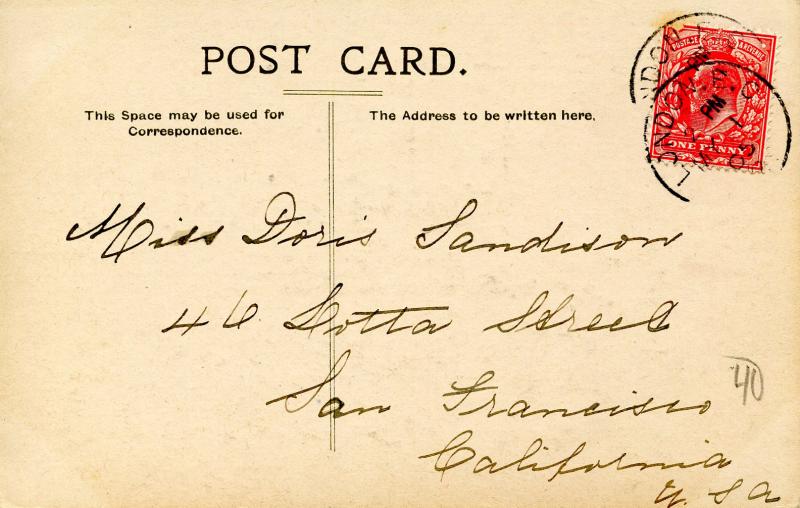 POST CARD.
This Space may be used for
Correspondence.
The Address to be written here.
POSTAGE & REVENUE
ONE PENNY
LONDON
PM
Miss Doris Sandison
46 Lotta Street
San Francisco
California
U. S A
40